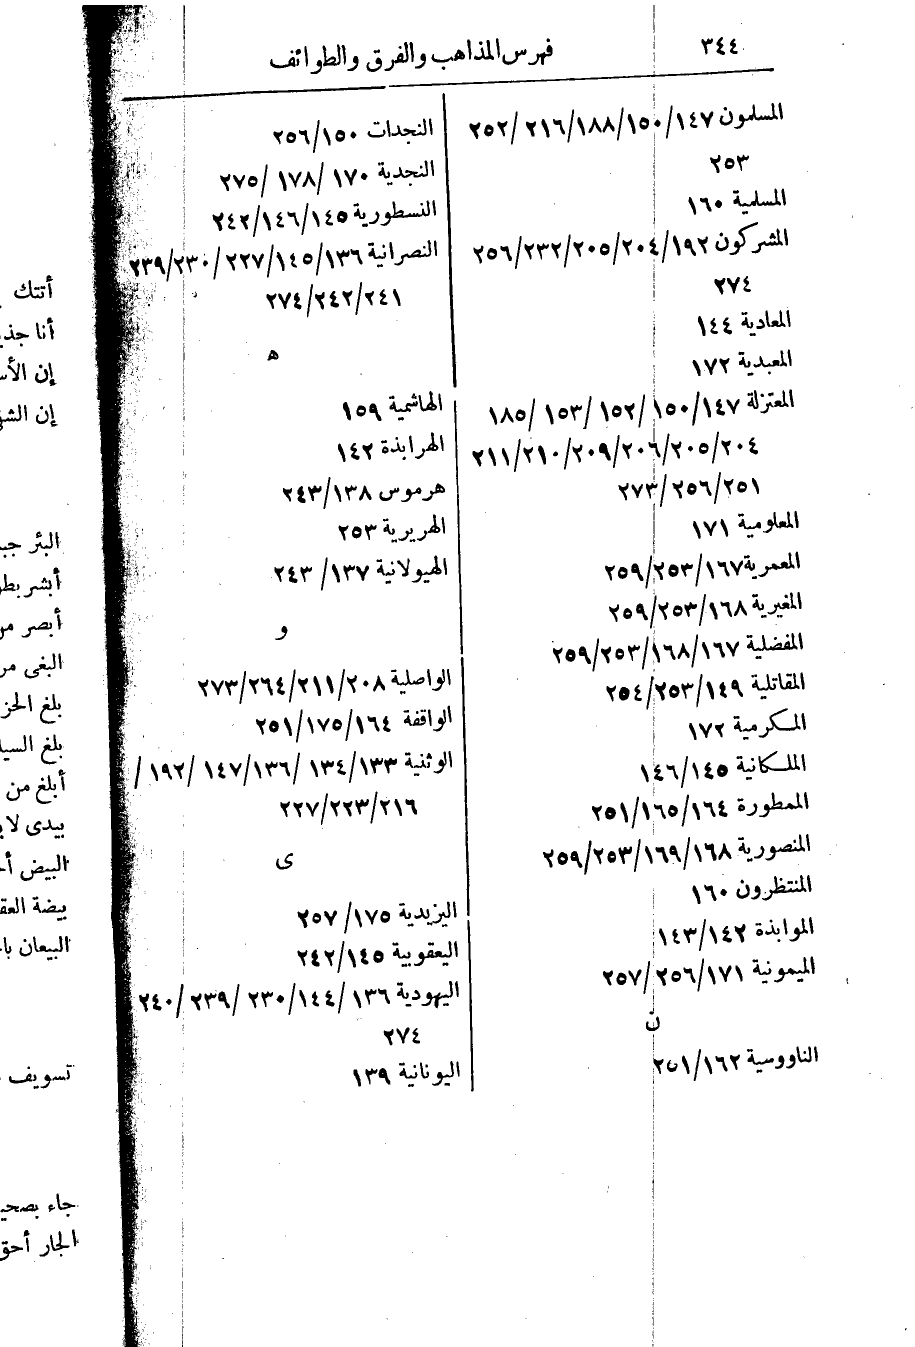 ٣٤٤
فهرس المذاهب والفرق والطوائف
المسلمون ١٤٧/١٥٠/١٨٨/٢١٦/ ٢٥٢
٢٥٣
المسلمية ١٦٠
المشركون ١٩٢/٢٠٤/٢٠٥/٢٣٢/٢٥٦
٢٧٤
المعادية ١٤٤
المعبدية ١٧٢
المعتزلة ١٤٧/١٥٠/ ١٥٢/ ١٥٣/ ١٨٥
٢٠٤/٢٠٥/٢٠٦/٢٠٩/٢١٠/٢١١
٢٥١/٢٥٦/ ٢٧٣
المعلومية ١٧١
المعمرية١٦٧/٢٥٣/٢٥٩
المغيرية ١٦٨/٢٥٣/٢٥٩
المفضلية ١٦٧/١٦٨/٢٥٣/٢٥٩
المقاتلية ١٤٩/٢٥٣/٢٥٤
المكرمية ١٧٢
الملكانية ١٤٥/١٤٦
الممطورة ١٦٤/١٦٥/٢٥١
المنصورية ١٦٨/١٦٩/٢٥٣/٢٥٩
المنتظرون ١٦٠
الموابذة ١٤٢/١٤٣
الميمونية ١٧١/٢٥٦/ ٢٥٧
ن
الناووسية ١٦٢/٢٥١
النجدات ١٥٠/٢٥٦
النجدية ١٧٠/ ١٧٨/ ٢٧٥
النسطورية ١٤٥/١٤٦/٢٤٢
النصرانية ١٣٦/١٤٥/٢٢٧/ ٢٣٠/٢٣٩
٢٤١/٢٤٢/٢٧٤
ه
الهاشمية ١٥٩
الهرابذة ١٤٢
هرموس ١٣٨/٢٤٣
الهريرية ٢٥٣
الهيولانية ١٣٧/ ٢٤٣
و
الواصلية ٢٠٨/٢١١/٢٦٤/٢٧٣
الواقفة ١٦٤/١٧٥/٢٥١
الوثنية ١٣٣/١٣٤ /١٣٦/١٤٧ /١٩٢ /
٢١٦/٢٢٣/٢٢٧
ى
اليزيدية ١٧٥/ ٢٥٧
اليعقوبية ١٤٥/٢٤٢
اليهودية ١٣٦ /١٤٤/٢٣٠ /٢٣٩ /٢٤٠
٢٧٤
اليونانية ١٣٩
أتتك
أنا
إن
إن
البئر
أبشر
أبصر
البغى
بلغ
بلغ
أبلغ من
بيدى
البيض
بيضة
البيعان
تسويف
جاء
الجار أحق